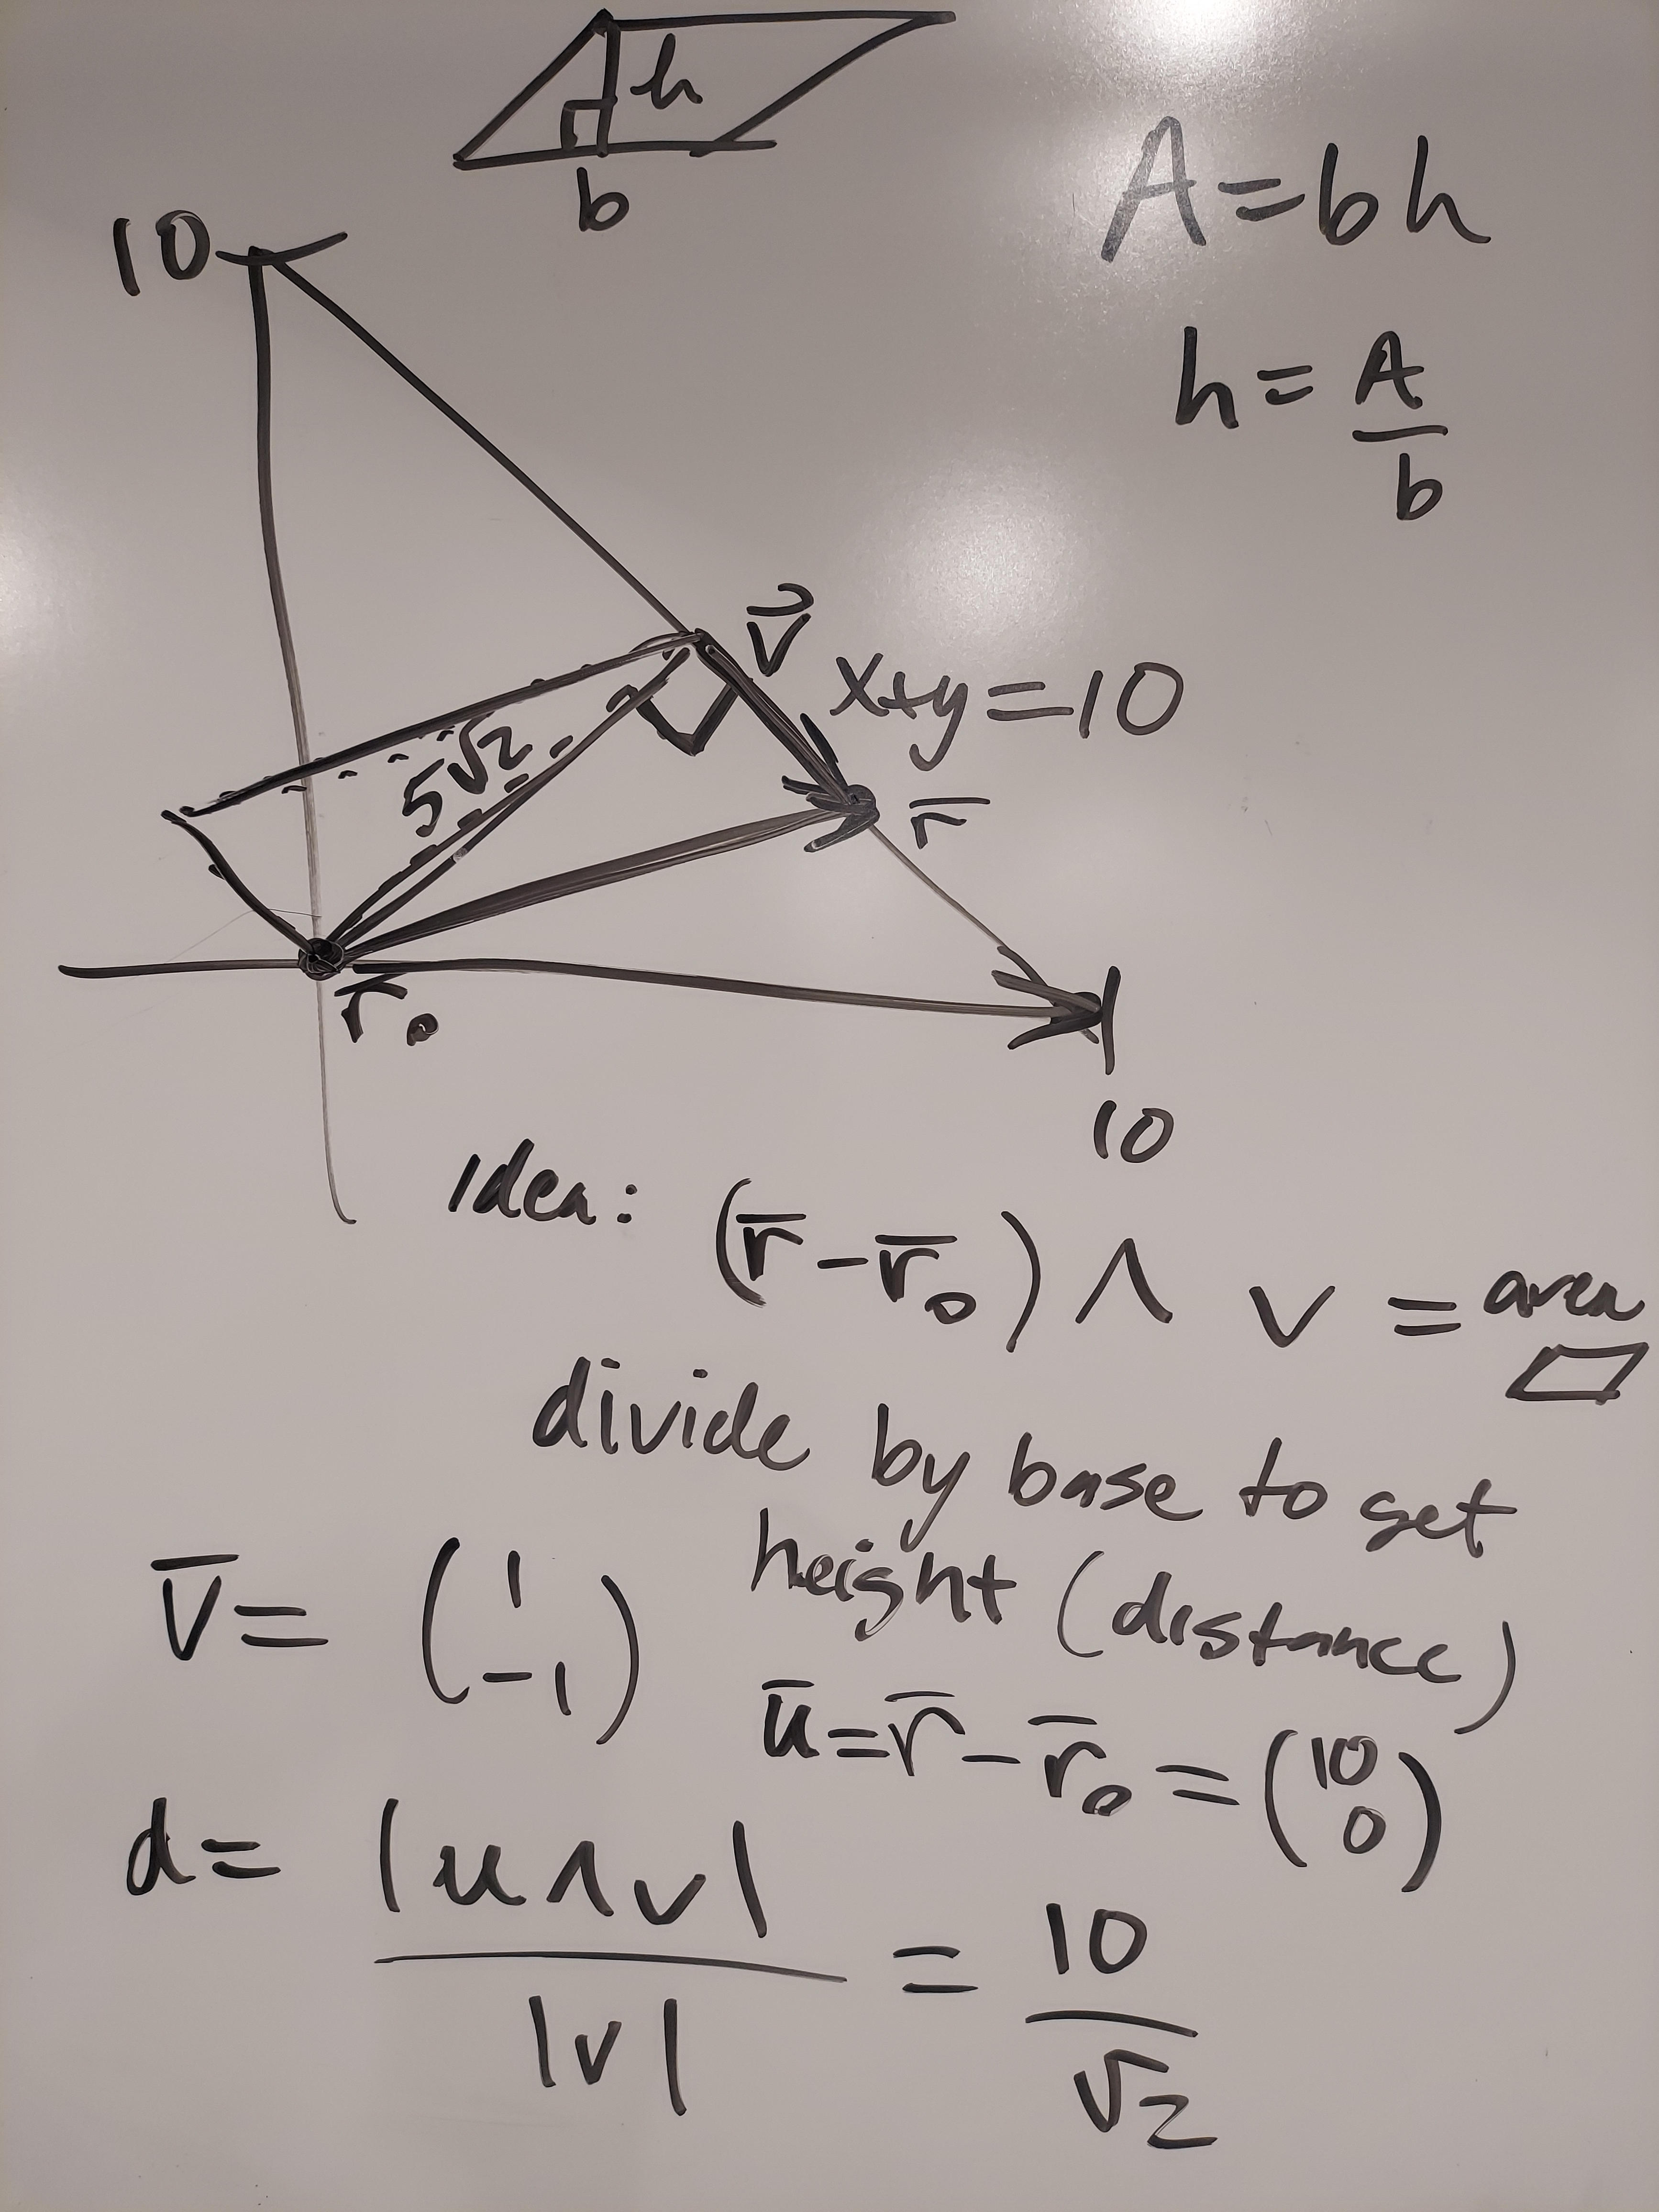 h
b
A=bh
10
h=A/b
v̄
x+y=10
5√2
r̄
r̄₀
10
idea: (r̄-r̄₀)∧ v = area
divide by base to get
height (distance)
v̄= (1 -1)
ū=r̄-r̄₀=(10 0)
d= |u∧v|/|v| = 10/√2